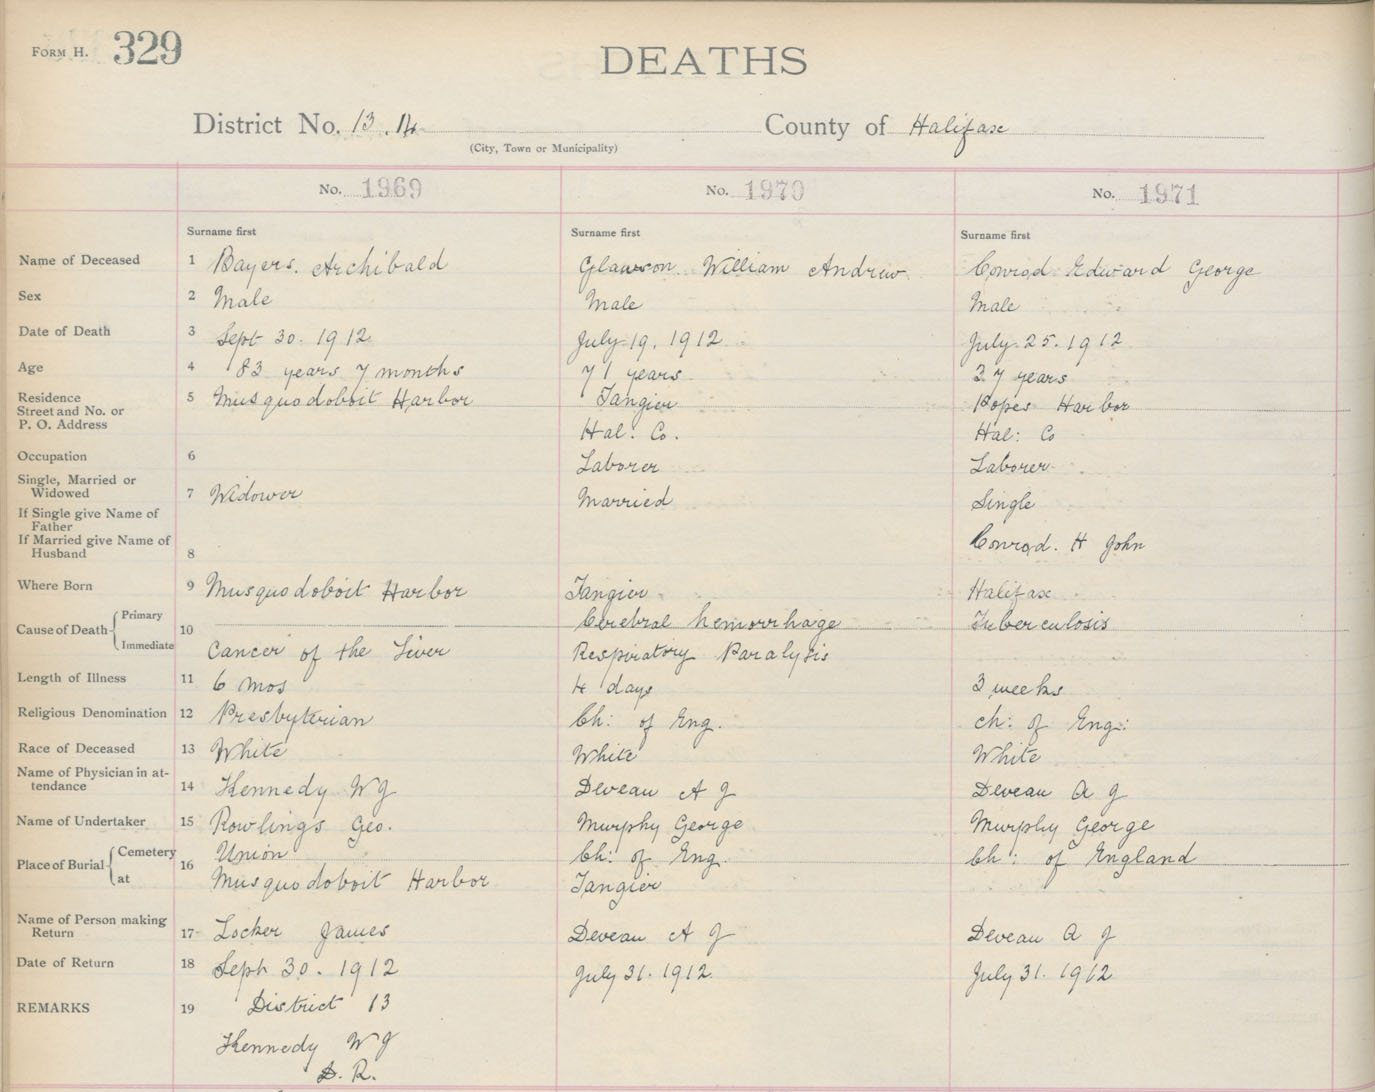 FORM H. 329
DEATHS
District No. 13.14 County of Halifax
(City, Town or Municipality)
No. 1969 No. 1970 No. 1971
Surname first Surname first Surname first
Name of Deceased 1 Bayers. Archibald Glawson William Andrew Conrod Edward George
Sex 2 Male Male Male
Date of Death 3 Sept 30. 1912 July 19. 1912 July 25. 1912
Age 4 83 years 7 months 71 years 37 years
Residence
Street and No. or
P. O. Address
5 Musquodoboit Harbor Tangier Popes Harbor
Hal. Co. Hal: Co
Occupation 6 Laborer Laborer
Single, Married or
Widowed 7 Widower Married Single
If Single give Name of
Father
If Married give Name of
Husband 8 Conrod. H John
Where Born 9 Musquodoboit Harbor Tangier Halifax
Cause of Death 10 Primary Cerebral hemorrhage Tuberculosis
Immediate Cancer of the Liver Respiratory Paralysis
Length of Illness 11 6 mos 4 days 3 weeks
Religious Denomination 12 Presbyterian Ch: of Eng. Ch: of Eng:
Race of Deceased 13 White White White
Name of Physician in at-
tendance 14 Kennedy W J Deveau A J Deveau A J
Name of Undertaker 15 Rowlings Geo. Murphy George Murphy George
Place of Burial 16 Cemetery Union Ch: of Eng. Ch: of England
at Musquodoboit Harbor Tangier
Name of Person making
Return 17 Locker James Deveau A J Deveau A J
Date of Return 18 Sept 30. 1912 July 31. 1912 July 31. 1912
REMARKS 19 District 13
Kennedy W J
D. R.